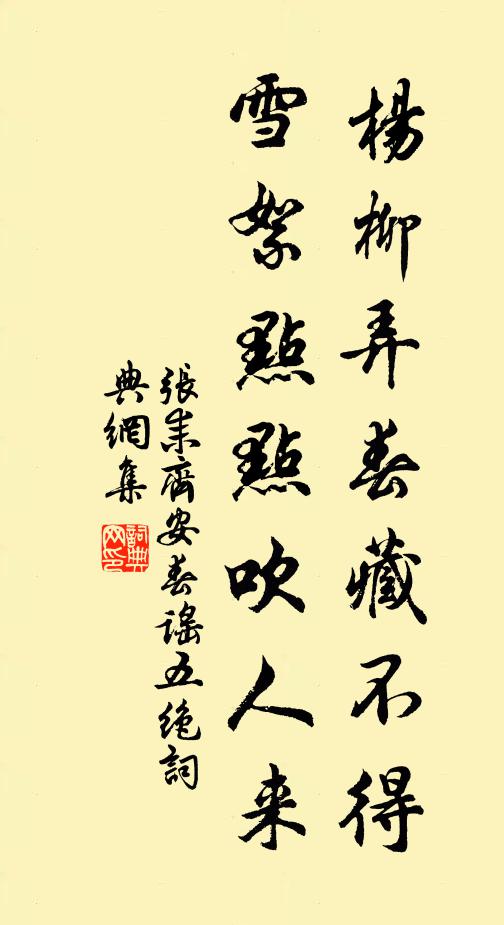 楊柳弄春藏不得
雪絮點點吹人来
張耒齊安春謠五絶詞
典網集
詞典
网印